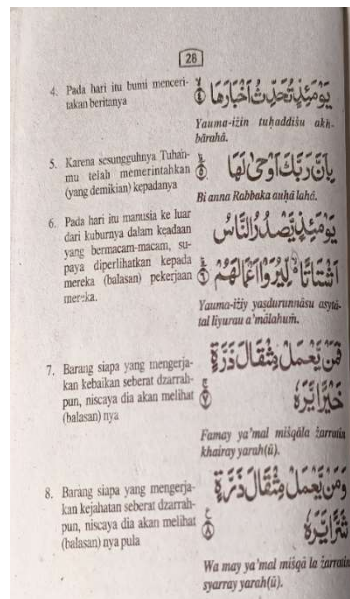 28
4. Pada hari itu bumi menceri-
takan beritanya
يَوْمَئِذٍ تُحَدِّثُ أَخْبَارَهَا ۙ ٤
Yauma-iżin tuḥaddiṡu akh-
bārahā.
5. Karena sesungguhnya Tuhan-
mu telah memerintahkan
(yang demikian) kepadanya
بِأَنَّ رَبَّكَ أَوْحَىٰ لَهَا ۗ ٥
Bi anna Rabbaka auḥā lahā.
6. Pada hari itu manusia ke luar
dari kuburnya dalam keadaan
yang bermacam-macam, su-
paya diperlihatkan kepada
mereka (balasan) pekerjaan
mereka.
يَوْمَئِذٍ يَّصْدُرُ النَّاسُ
أَشْتَاتًا ەۙ لِّيُرَوْا أَعْمَالَهُمْ ۗ ٦
Yauma-iżiy yasdurunnāsu asytā-
tal liyurau a'mālahum.
7. Barang siapa yang mengerja-
kan kebaikan seberat dzarrah-
pun, niscaya dia akan melihat
(balasan) nya
فَمَنْ يَّعْمَلْ مِثْقَالَ ذَرَّةٍ
خَيْرًا يَّرَهُ ۚ ٧
Famay ya'mal miṡqāla żarratin
khairay yarah(ū).
8. Barang siapa yang mengerja-
kan kejahatan seberat dzarrah-
pun, niscaya dia akan melihat
(balasan) nya pula
وَمَنْ يَّعْمَلْ مِثْقَالَ ذَرَّةٍ
شَرًّا يَّرَهُ ٨
Wa may ya'mal miṡqā la żarratin
syarray yarah(ū).